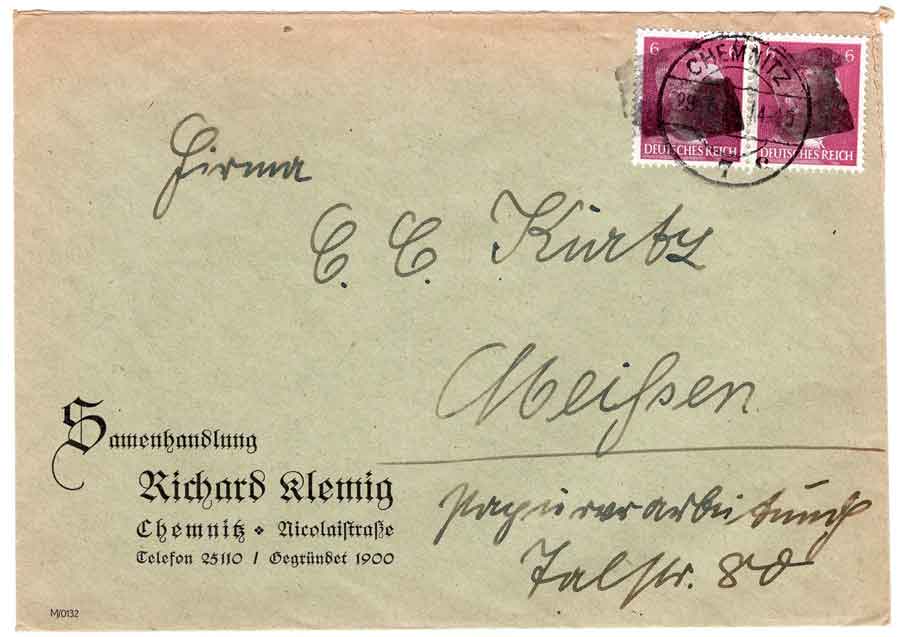 6 6 6
CHEMNITZ
DEUTSCHES REICH DEUTSCHES REICH
Firma
C. C. Kurtz
Meißen
Papierverarbeitung
Talstr. 80
Samenhandlung
Richard Klemig
Chemnitz Nicolaistraße
Telefon 25110 / Gegründet 1900
M/0132